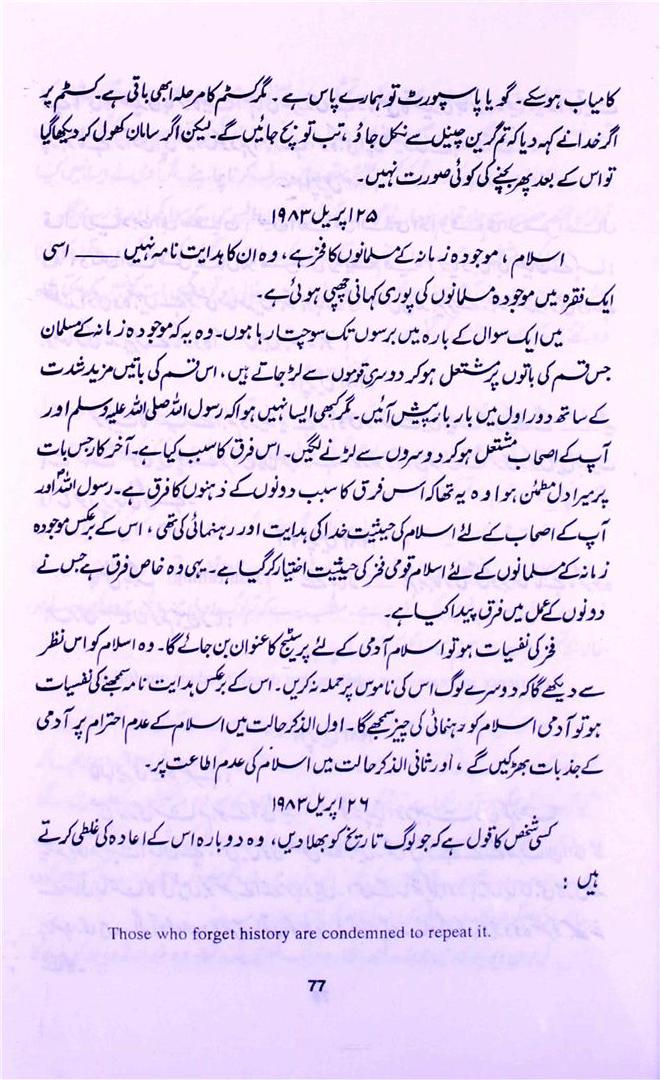 کامیاب ہو سکے۔ گویا پاسپورٹ تو ہمارے پاس ہے۔ مگر کسٹم کا مرحلہ ابھی باقی ہے۔ کسٹم پر
اگر خدا نے کہہ دیا کہ تم گرین چینل سے نکل جاؤ، تب تو بچ جائیں گے۔ لیکن اگر سامان کھول کر دیکھا گیا
تو اس کے بعد پھر بچنے کی کوئی صورت نہیں۔
۲۵ اپریل ۱۹۸۳
اسلام، موجودہ زمانہ کے مسلمانوں کا فخر ہے، وہ ان کا ہدایت نامہ نہیں ــــــ اسی
ایک فقرہ میں موجودہ مسلمانوں کی پوری کہانی چھپی ہوئی ہے۔
میں ایک سوال کے بارہ میں برسوں تک سوچتا رہا ہوں۔ وہ یہ کہ موجودہ زمانہ کے مسلمان
جس قسم کی باتوں پر مشتعل ہو کر دوسری قوموں سے لڑ جاتے ہیں، اس قسم کی باتیں مزید شدت
کے ساتھ دور اول میں بار بار پیش آئیں۔ مگر کبھی ایسا نہیں ہوا کہ رسول اللہ صلی اللہ علیہ وسلم اور
آپ کے اصحاب مشتعل ہو کر دوسروں سے لڑنے لگیں۔ اس فرق کا سبب کیا ہے۔ آخر کار جس بات
پر میرا دل مطمئن ہوا وہ یہ تھا کہ اس فرق کا سبب دونوں کے ذہنوں کا فرق ہے۔ رسول اللہؐ اور
آپ کے اصحاب کے لئے اسلام کی حیثیت خدا کی ہدایت اور رہنمائی کی تھی، اس کے برعکس موجودہ
زمانہ کے مسلمانوں کے لئے اسلام قومی فخر کی حیثیت اختیار کر گیا ہے۔ یہی وہ خاص فرق ہے جس نے
دونوں کے عمل میں فرق پیدا کیا ہے۔
فخر کی نفسیات ہو تو اسلام آدمی کے لئے پرسٹیج کا عنوان بن جائے گا۔ وہ اسلام کو اس نظر
سے دیکھے گا کہ دوسرے لوگ اس کی ناموس پر حملہ نہ کریں۔ اس کے برعکس ہدایت نامہ سمجھنے کی نفسیات
ہو تو آدمی اسلام کو رہنمائی کی چیز سمجھے گا۔ اول الذکر حالت میں اسلام کے عدم احترام پر آدمی
کے جذبات بھڑکیں گے، اور ثانی الذکر حالت میں اسلام کی عدم اطاعت پر۔
۲۶ اپریل ۱۹۸۳
کسی شخص کا قول ہے کہ جو لوگ تاریخ کو بھلا دیں، وہ دوبارہ اس کے اعادہ کی غلطی کرتے
ہیں:
Those who forget history are condemned to repeat it.
77